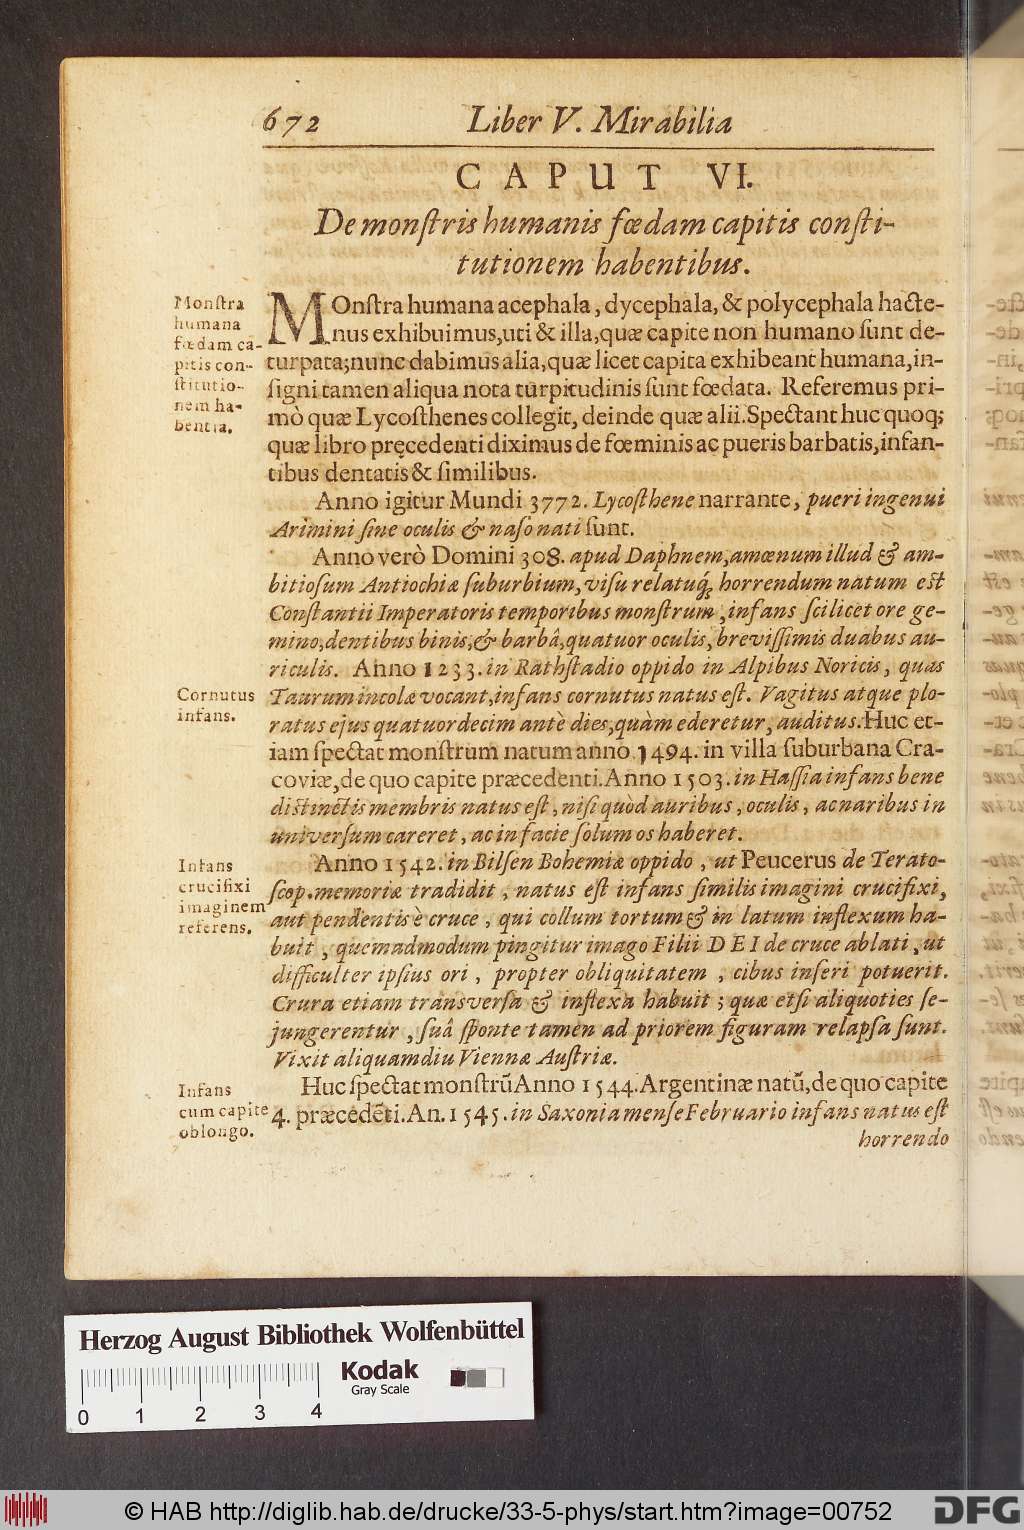 672 Liber V. Mirabilia
CAPUT VI.
De monſtris humanis fœdam capitis conſti-
tutionem habentibus.
Monſtra
humana
fœdam ca-
pitis con-
ſtitutio-
nem ha-
bentia.
MOnſtra humana acephala, dycephala, & polycephala hacte-
nus exhibuimus, uti & illa, quæ capite non humano ſunt de-
turpata; nunc dabimus alia, quæ licet capita exhibeant humana, in-
ſigni tamen aliqua nota turpitudinis ſunt fœdata. Referemus pri-
mò quæ Lycoſthenes collegit, deinde quæ alii. Spectant huc quoq;
quæ libro pręcedenti diximus de fœminis ac pueris barbatis, infan-
tibus dentatis & ſimilibus.
Anno igitur Mundi 3772. Lycoſthene narrante, pueri ingenui
Arimini ſine oculis & naſo nati ſunt.
Anno verò Domini 308. apud Daphnem, amœnum illud & am-
bitioſum Antiochiæ ſuburbium, viſu relatuq́; horrendum natum eſt
Conſtantii Imperatoris temporibus monſtrum, infans ſcilicet ore ge-
mino, dentibus binis, & barbâ, quatuor oculis, breviſſimis duabus au-
riculis. Anno 1233. in Rathſtadio oppido in Alpibus Noricis, quas
Cornutus
infans.
Taurum incolæ vocant, infans cornutus natus eſt. Vagitus atque plo-
ratus ejus quatuordecim antè dies, quàm ederetur, auditus. Huc et-
iam ſpectat monſtrum natum anno 1494. in villa ſuburbana Cra-
coviæ, de quo capite præcedenti. Anno 1503. in Haſſia infans bene
diſtinctis membris natus eſt, niſi quòd auribus, oculis, ac naribus in
univerſum careret, ac in facie ſolum os haberet.
Infans
crucifixi
imaginem
referens.
Anno 1542. in Bilſen Bohemiæ oppido, ut Peucerus de Terato-
ſcop. memoriæ tradidit, natus eſt infans ſimilis imagini crucifixi,
aut pendentis è cruce, qui collum tortum & in latum inflexum ha-
buit, quemadmodum pingitur imago Filii DEI de cruce ablati, ut
difficulter ipſius ori, propter obliquitatem, cibus inſeri potuerit.
Crura etiam transverſa & inflexa habuit; quæ etſi aliquoties ſe-
jungerentur, ſuâ ſponte tamen ad priorem figuram relapſa ſunt.
Vixit aliquamdiu Viennæ Auſtriæ.
Infans
cum capite
oblongo.
Huc ſpectat monſtrũ Anno 1544. Argentinæ natũ, de quo capite
4. præcedẽti. An. 1545. in Saxonia menſe Februario infans natus eſt
horrendo
Herzog August Bibliothek Wolfenbüttel
Kodak
Gray Scale
0 1 2 3 4
© HAB http://diglib.hab.de/drucke/33-5-phys/start.htm?image=00752
DFG